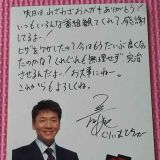 昨日はわざわざおハガキありがとう!
いつもいろんな番組観てくれて感謝
してるよ!
ヒザをケガしたの?今はもうだいぶ良くなっ
たのかな?くれぐれも無理せず、完治
させるんだよ!お大事にねー。
これからもよろしくね。
くりぃむしちゅー